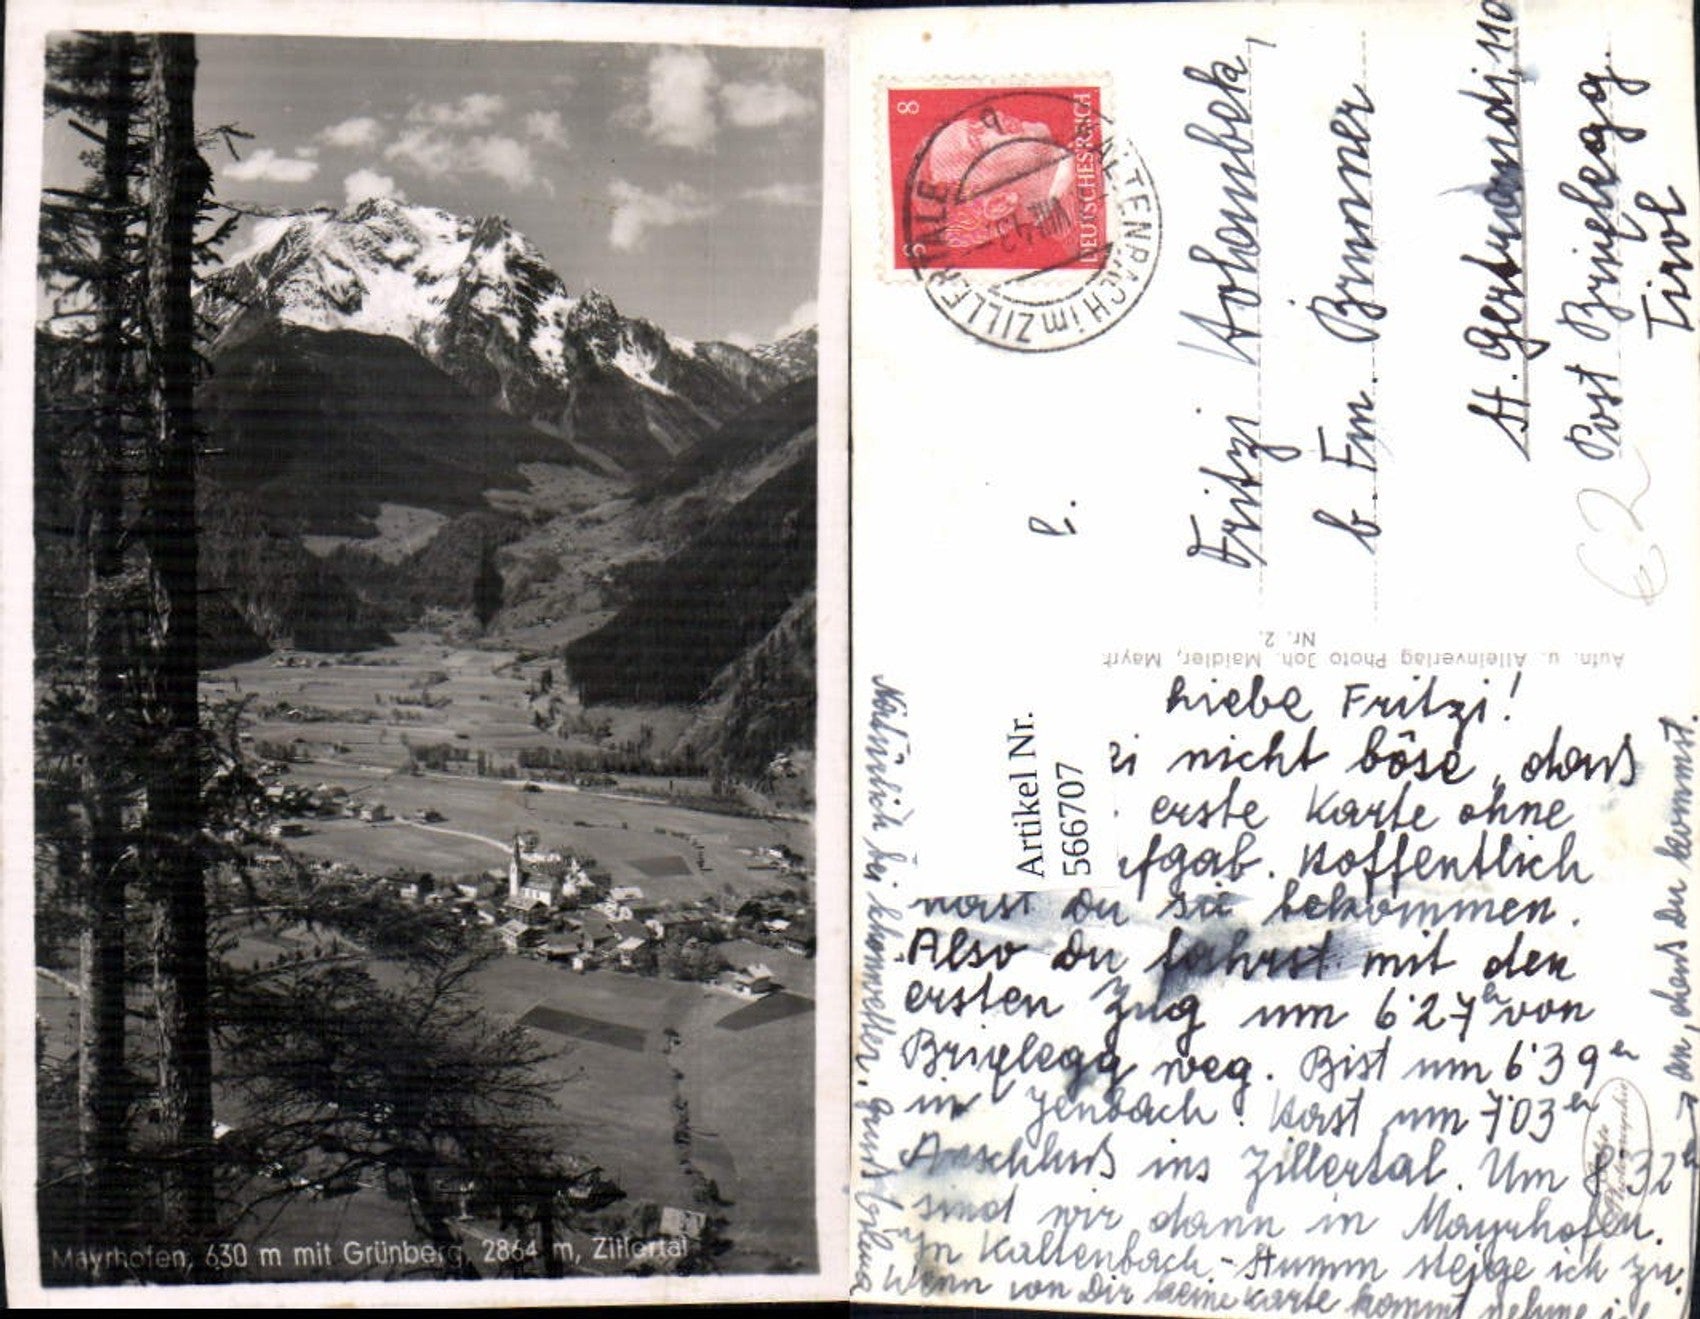 Mayrhofen, 630 m mit Grünberg, 2864 m, Zillertal
8
DEUTSCHES REICH
KALTENBACH im ZILLERTALE
Fritzi Hohenbek,
b. Fm. Brunner
St. Gertraudi, 110
Post Brixlegg.
Tirol
€2
Aufn. u. Alleinverlag Photo Joh. Maidler, Mayrh
Nr. 2.
Artikel Nr.
5667707
Liebe Fritzi!
ei nicht böse, daß
erste Karte ohne
ufgab. Hoffentlich
hast Du sie bekommen.
Also Du fahrst mit den
ersten Zug um 6'27h von
Brixlegg weg. Bist um 6'39er
in Jenbach. Hast um 7'03er
Anschluß ins Zillertal. Um 8'32h
sind wir dann in Mayrhofen.
In Kaltenbach-Stumm steige ich zu.
Wenn von Dir keine Karte kommt nehme ich
an, daß Du kommst.
Natürlich bei schönwetter. Gruß
Echte Photographie